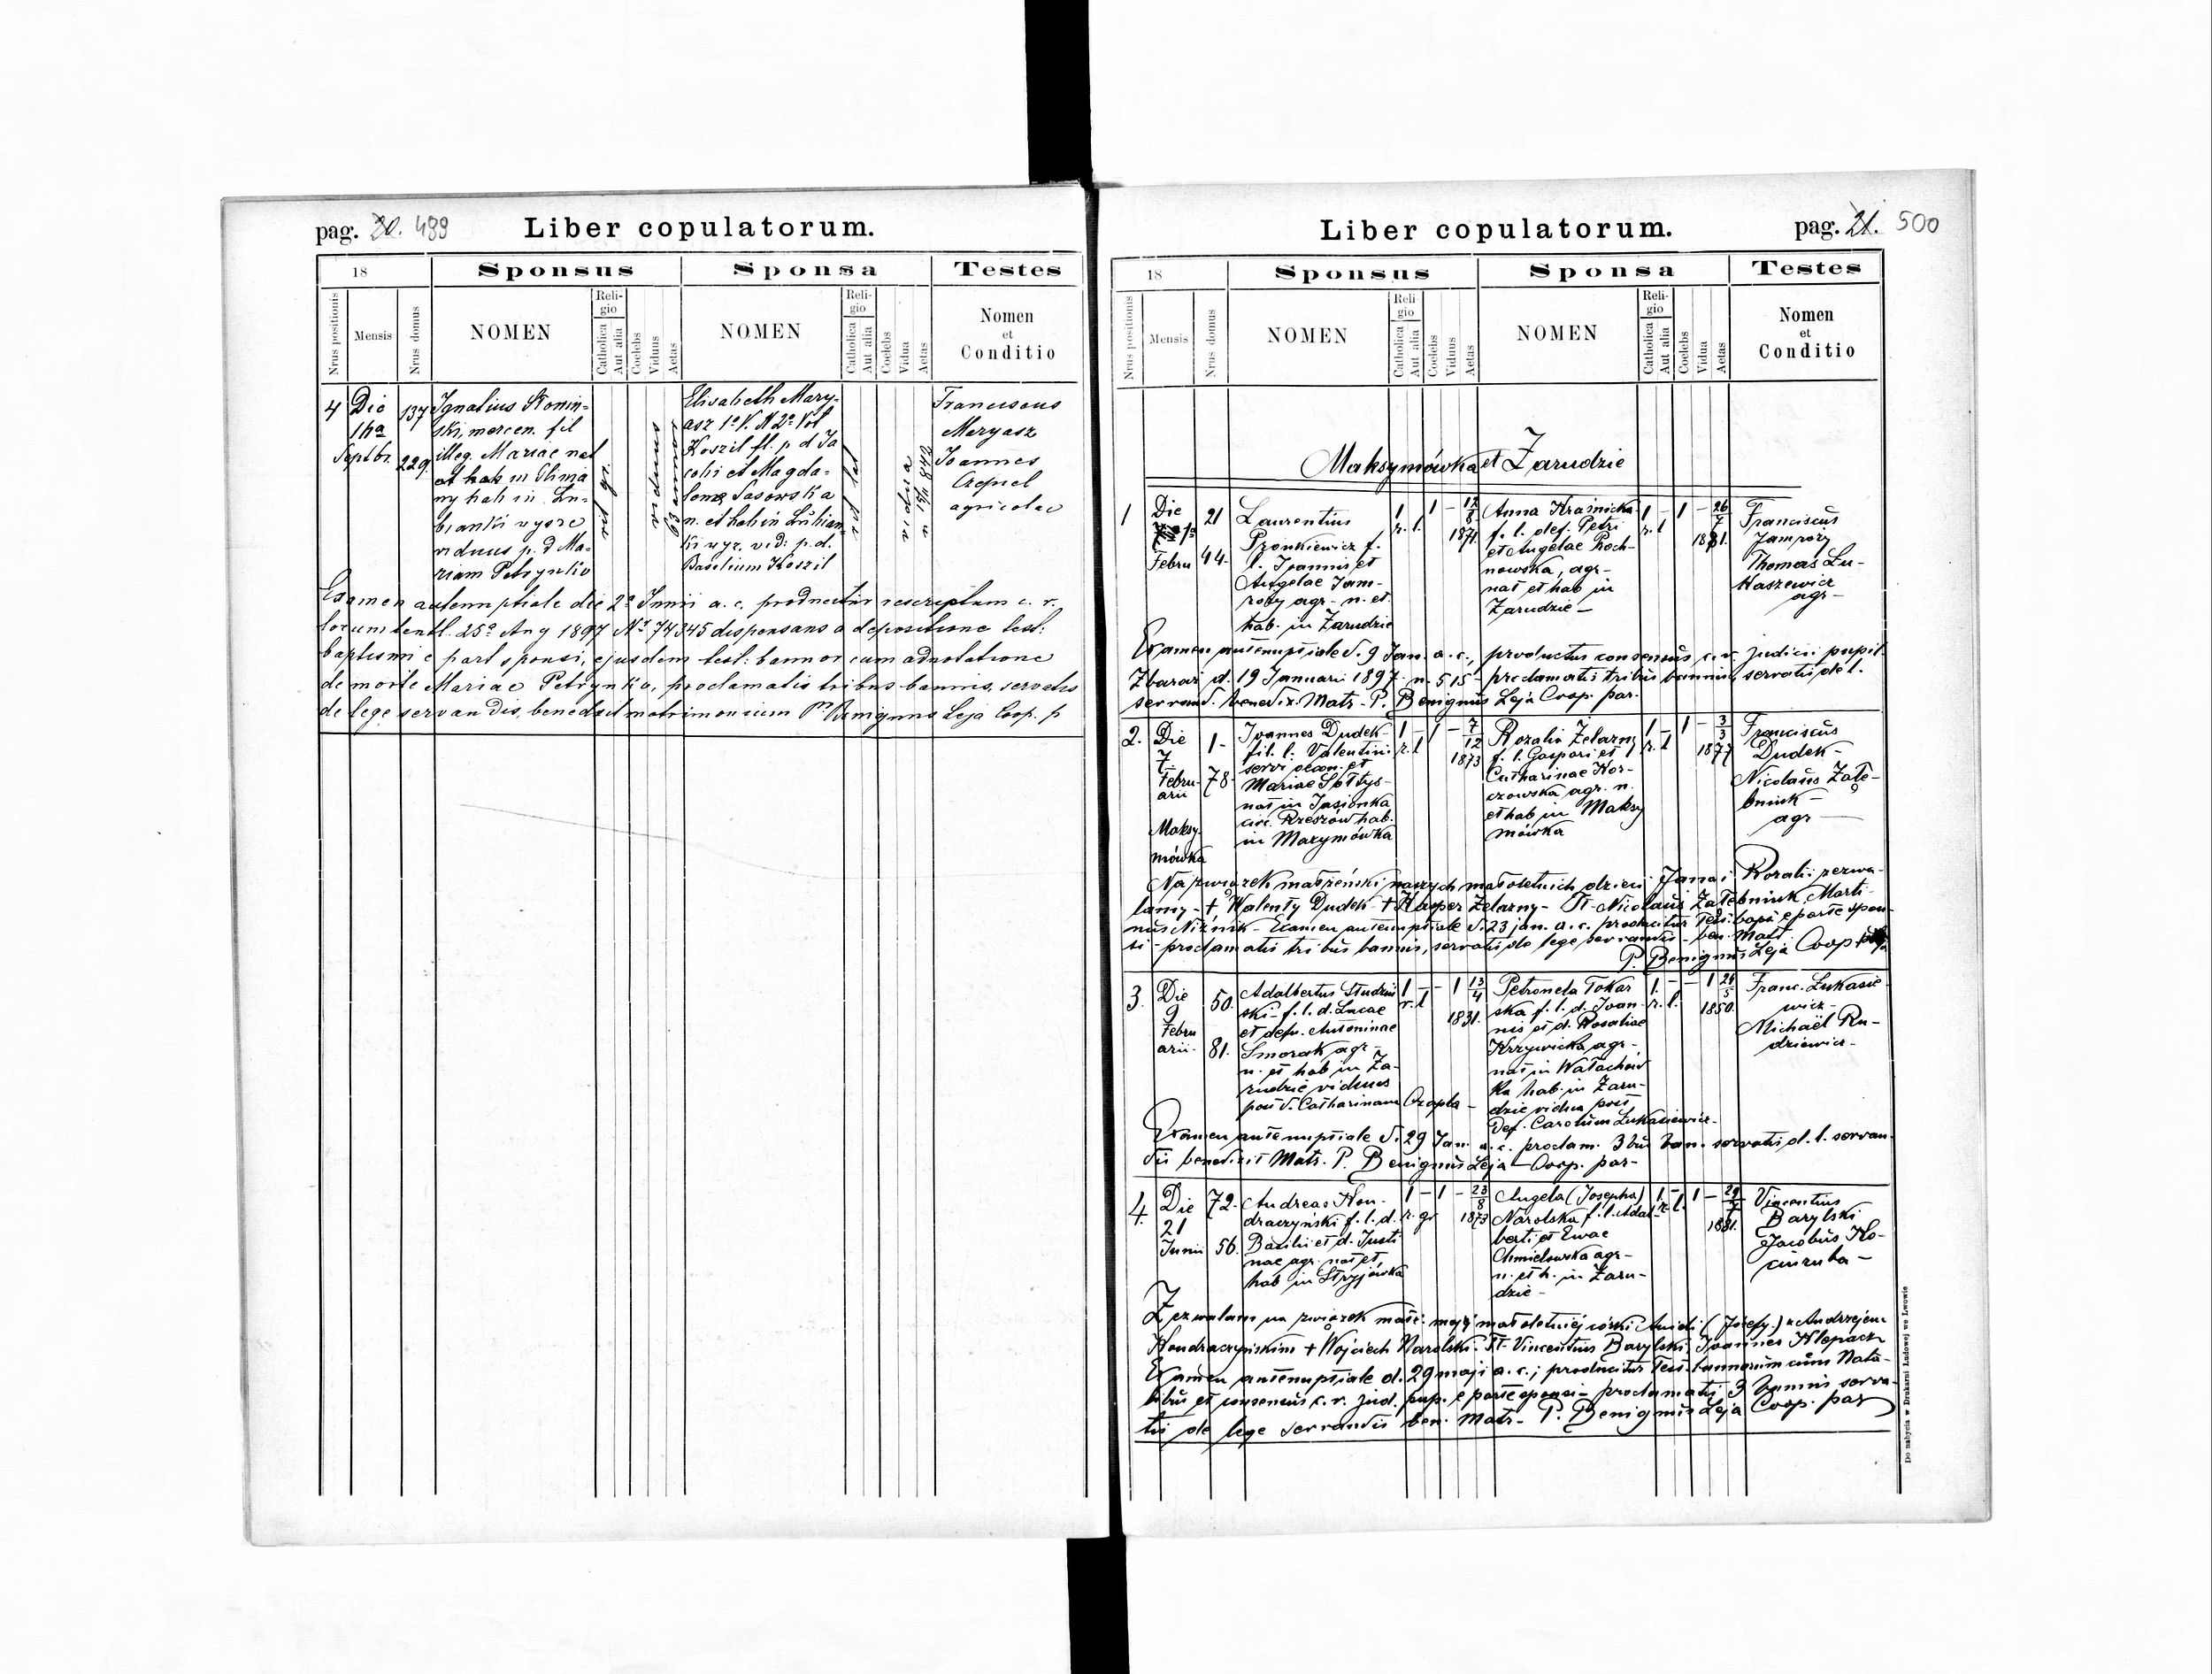 pag. 20. 499 Liber copulatorum.
18 Sponsus Sponsa Testes
Nrus positionis Mensis Nrus domus NOMEN Religio Catholica Aut alia Coelebs Viduus Aetas NOMEN Religio Catholica Aut alia Coelebs Vidua Aetas Nomen et Conditio
4 Die
Septbr.
137
229.
Ignatius Słonin-
ski, mercen. fil
illeg. Mariae nat
et hab in Glinia
ny hab in Lu-
bianki wyższe
viduus p. d Ma-
riam Petrynko
viduus
Elisabeth Mary-
asz 1o V. N 2o Vol
Koszil fil. p. d Ja
cobi et Magda-
lena Sasowska
n. et hab in Lubian
ki wyz. vid: p. d.
Basilium Koszil
vidua
Franciscus
Maryasz
Joannes
Czepiel
agricolae
Examen antenuptiale die 2a Junii a. c. producitur rescriptum c. r.
locumtentl. 25a Aug 1897 No 74345 dispensans a depositione test:
baptismi e part sponsi, ejusdem test: bannor cum adnotatione
de morte Mariae Petrynko, proclamatis tribus bannis, servatis
de lege servandis, benedixit matrimonium Pr Benignus Leja Coop. p
Liber copulatorum. pag. 21. 500
18 Sponsus Sponsa Testes
Nrus positionis Mensis Nrus domus NOMEN Religio Catholica Aut alia Coelebs Viduus Aetas NOMEN Religio Catholica Aut alia Coelebs Vidua Aetas Nomen et Conditio
Maksymówka et Zarudzie
1 Die
Febru
21
44.
Laurentius
Pronkiewicz f.
l. Joannis et
Angelae Jam-
roży agr. n. et
hab. in Zarudzie
1 r. l. 1 - 12/8 1871.
Anna Kraśnicka
f. l. def. Petri
et Angelae Roch-
nowska, agr-
nat et hab in
Zarudzie -
1 - r. l 1 - 26/7 1881.
Franciscus
Jamroży
Thomas Lu-
kaszewicz
agr-
Examen antenuptiale d. 9 Jan. a. c., productus consensus c. r. judicii pupil.
Zbaraż d. 19 Januari 1897. n. 515 - proclamatis tribus bannis, servatis de l.
servand. benedix. Matr - P. Benignus Leja Coop. par.
2. Die
7.
Febru-
arii
Maksy
mówka
1-
78
Joannes Dudek
fil. l. Valentini
servi oecon. et
Mariae Sołtys-
nat in Jasionka
circ. Rzeszow hab.
in Maxymówka
1 - r. l 1 - 7/12 1873
Rozalia Żelazny
f. l. Gaspari et
Catharinae Hor-
czowska agr. n.
et hab in Maksy
mówka
1 - r. l 1 - 3/3 1877
Franciscus
Dudek -
Nicolaus Załę-
bniuk -
agr -
Na związek małżeński naszych małoletnich dzieci Jana i Rozalii zezwa-
lamy - + Walenty Dudek + Kasper Żelazny - Tt Nicolaus Załębniuk, Marti-
nus Niżnik - Examen antenuptiale d. 23 jan. a. c. producitur Test. bapt. e parte spon-
si - proclamatis tribus bannis, servatis de lege servandis - ben. Matr.
P. Benignus Leja Coop
3. Die
9
Febru
arii.
50.
81.
Adalbertus Studziń
ski - f. l. d. Lucae
et defu. Antoninae
Smorak agr -
n. et hab in Za-
rudzie viduus
post d. Catharinam Czapla -
1 - r. l - 1 13/4 1831.
Petronela Tokar
ska f. l. d. Joan-
nis et d. Rosaliae
Krzywicka agr -
nat in Wałachów
ka hab. in Zaru-
dzie vidua post
Def. Carolum Łukasiewicz -
1. - r. l. - 1 24/5 1850.
Franc. Łukasie
wicz -
Michaël Ru-
dziewicz -
Examen antenuptiale d. 29 Jan. a. c. proclam. 3 bus ban. servatis d. l. servan-
dis benedixit Matr. P. Benignus Leja - Coop. par -
4. Die
21
Junii
72.
56.
Andreas Hon-
draczyński f. l. d.
Basilii et d. Justi
nae agr. nat et
hab in Stryjówka
1 - r. gr 1 - 23/8 1873
Angela (Josepha)
Narolska f. l. Adal
berti et Evae
Chmielowska agr -
n. et h. in Zaru-
dzie -
1 - r. l. 1 - 1881.
Vincentius
Barylski
Jacobus Ko-
ciuruba -
Zezwalam na związek małż. mojej małoletniej córki Anieli (Józefy) z Andrzejem
Hondraczyńskim + Wojciech Narolski. Tt Vincentius Barylski, Joannes Klepacz
Examen antenuptiale d. 29 maji a. c.; producitur Test. bannorum cum Nata-
libus et consensus c. r. jud. pup. e parte sponsi - proclamatis 3 bannis serva-
tis de lege servandis ben. Matr - P. Benignus Leja Coop. par
Do nabycia w Drukarni Ludowej we Lwowie